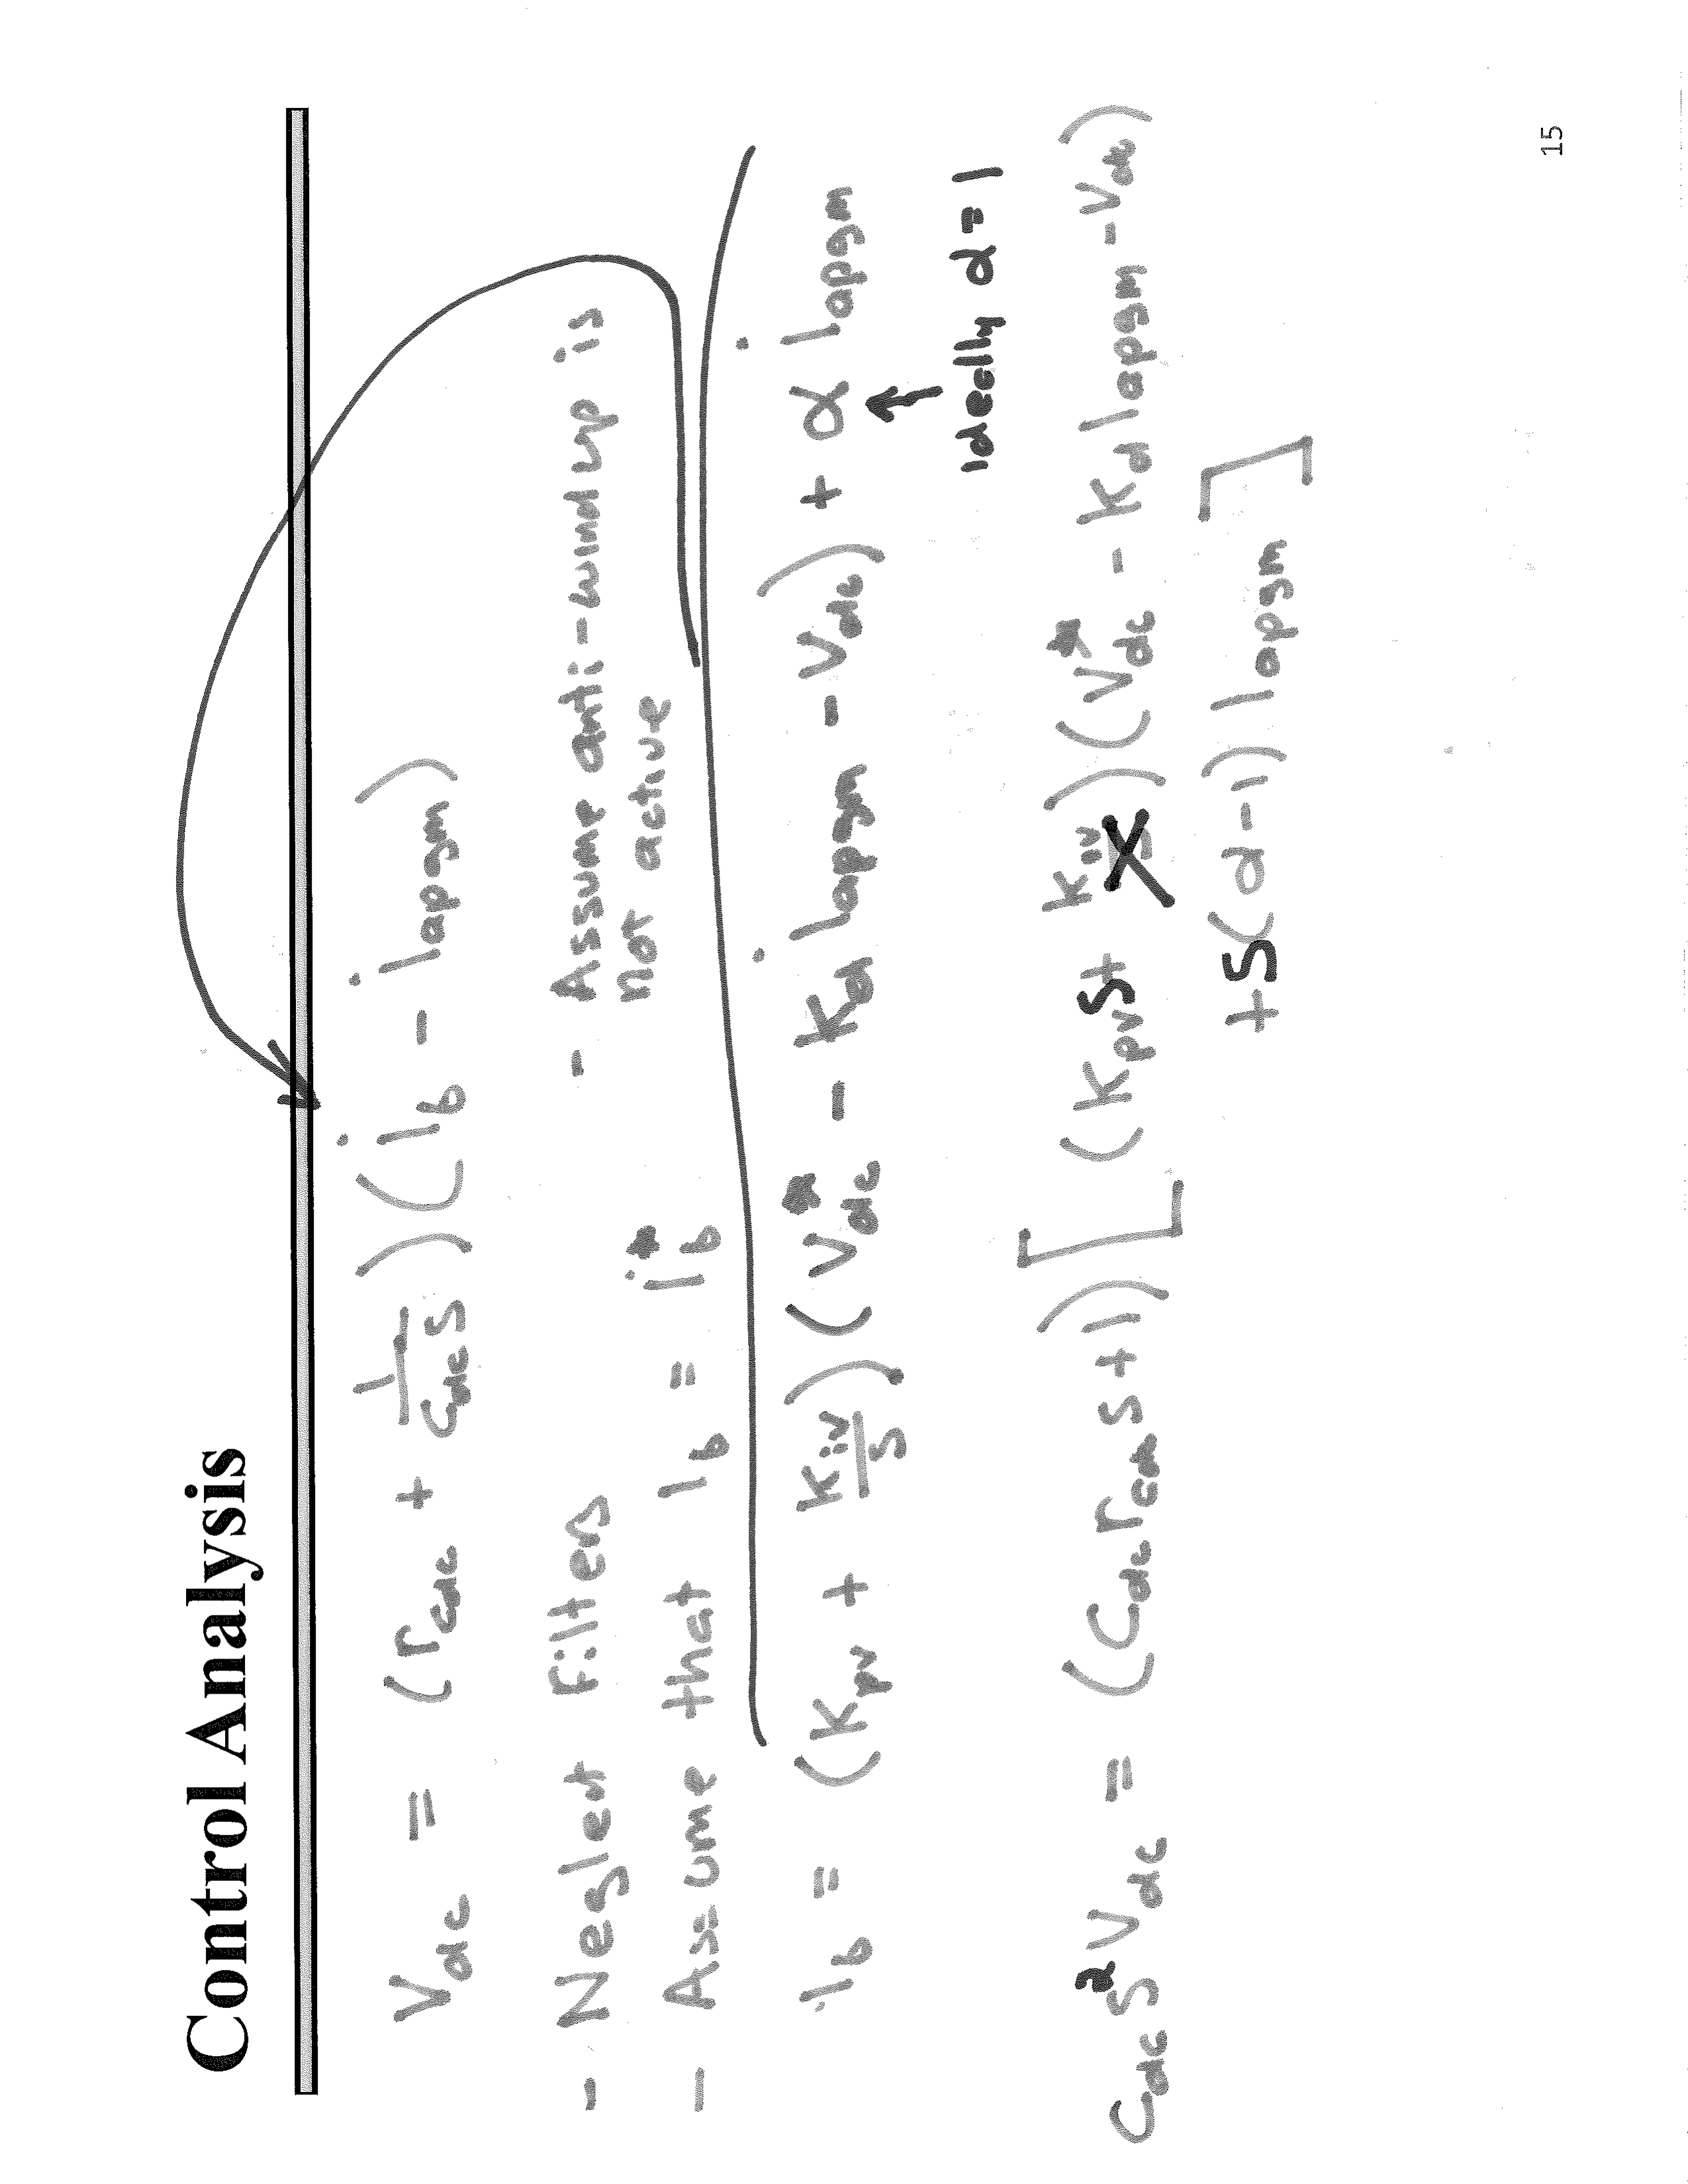 Control Analysis
Vdc = (rcdc + 1/(Cdc s))(ib - iapgm)
- Neglect filters - Assume anti-windup is
not active
- Assume that ib = ib*
ib = (Kpv + Kiv/s)(Vdc* - Kd iapgm - Vdc) + α iapgm
ideally α = 1
Cdc s² Vdc = (Cdc rcdc s + 1)[(Kpv s + Kiv)(Vdc* - Kd iapgm - Vdc)
+ s(α - 1) iapgm]
15